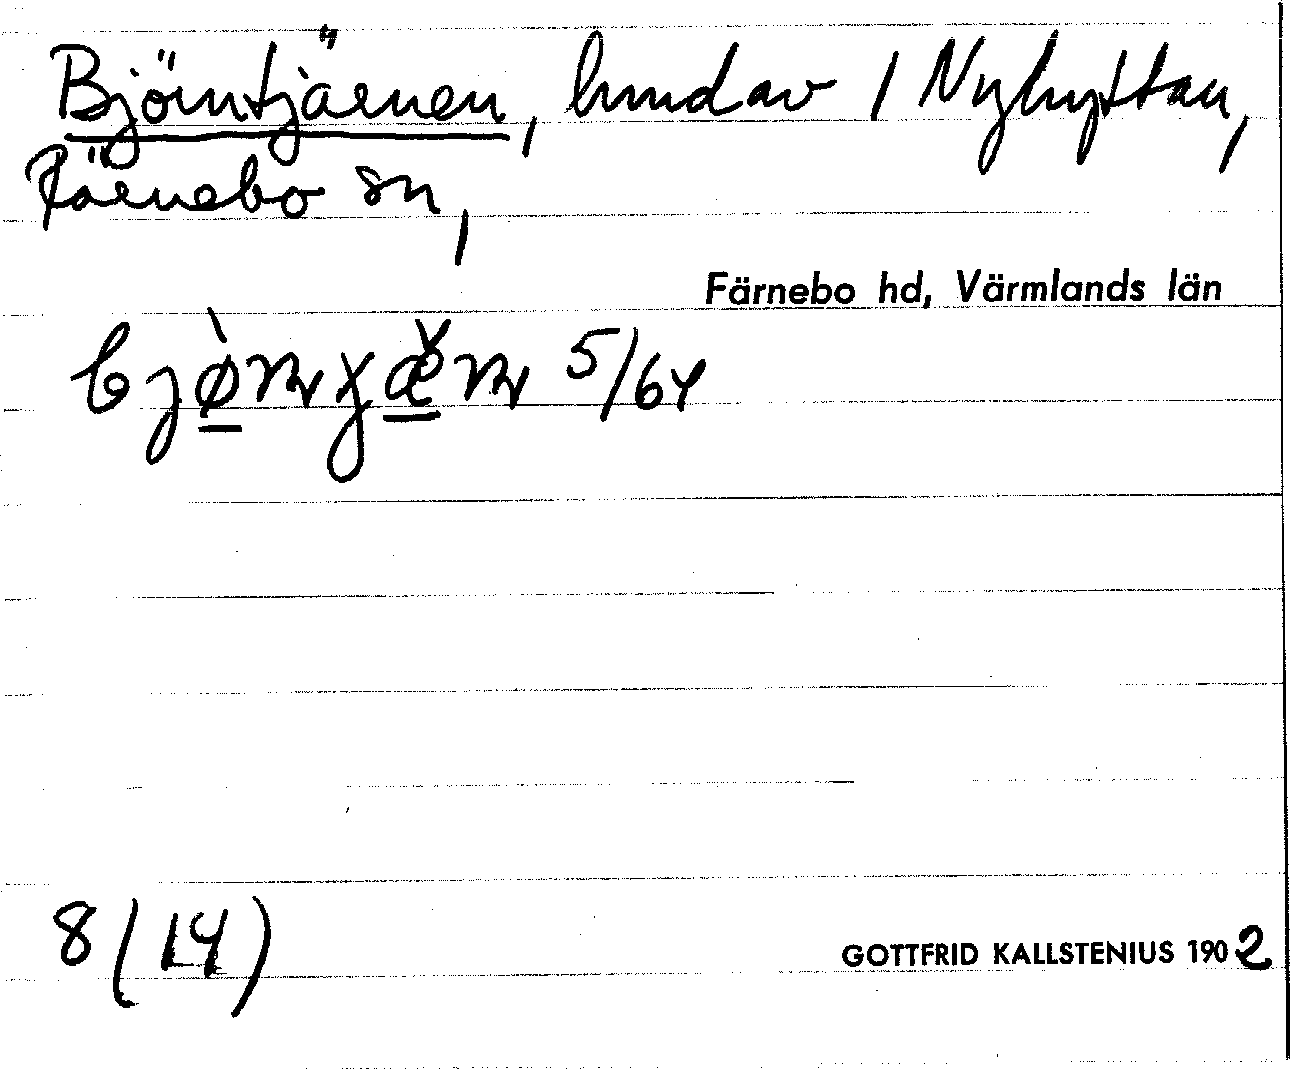 Björntjärnen, hmdav / Nyhyttan,
Färnebo sn,
Färnebo hd, Värmlands län
5/64
8 (14)
GOTTFRID KALLSTENIUS 1902